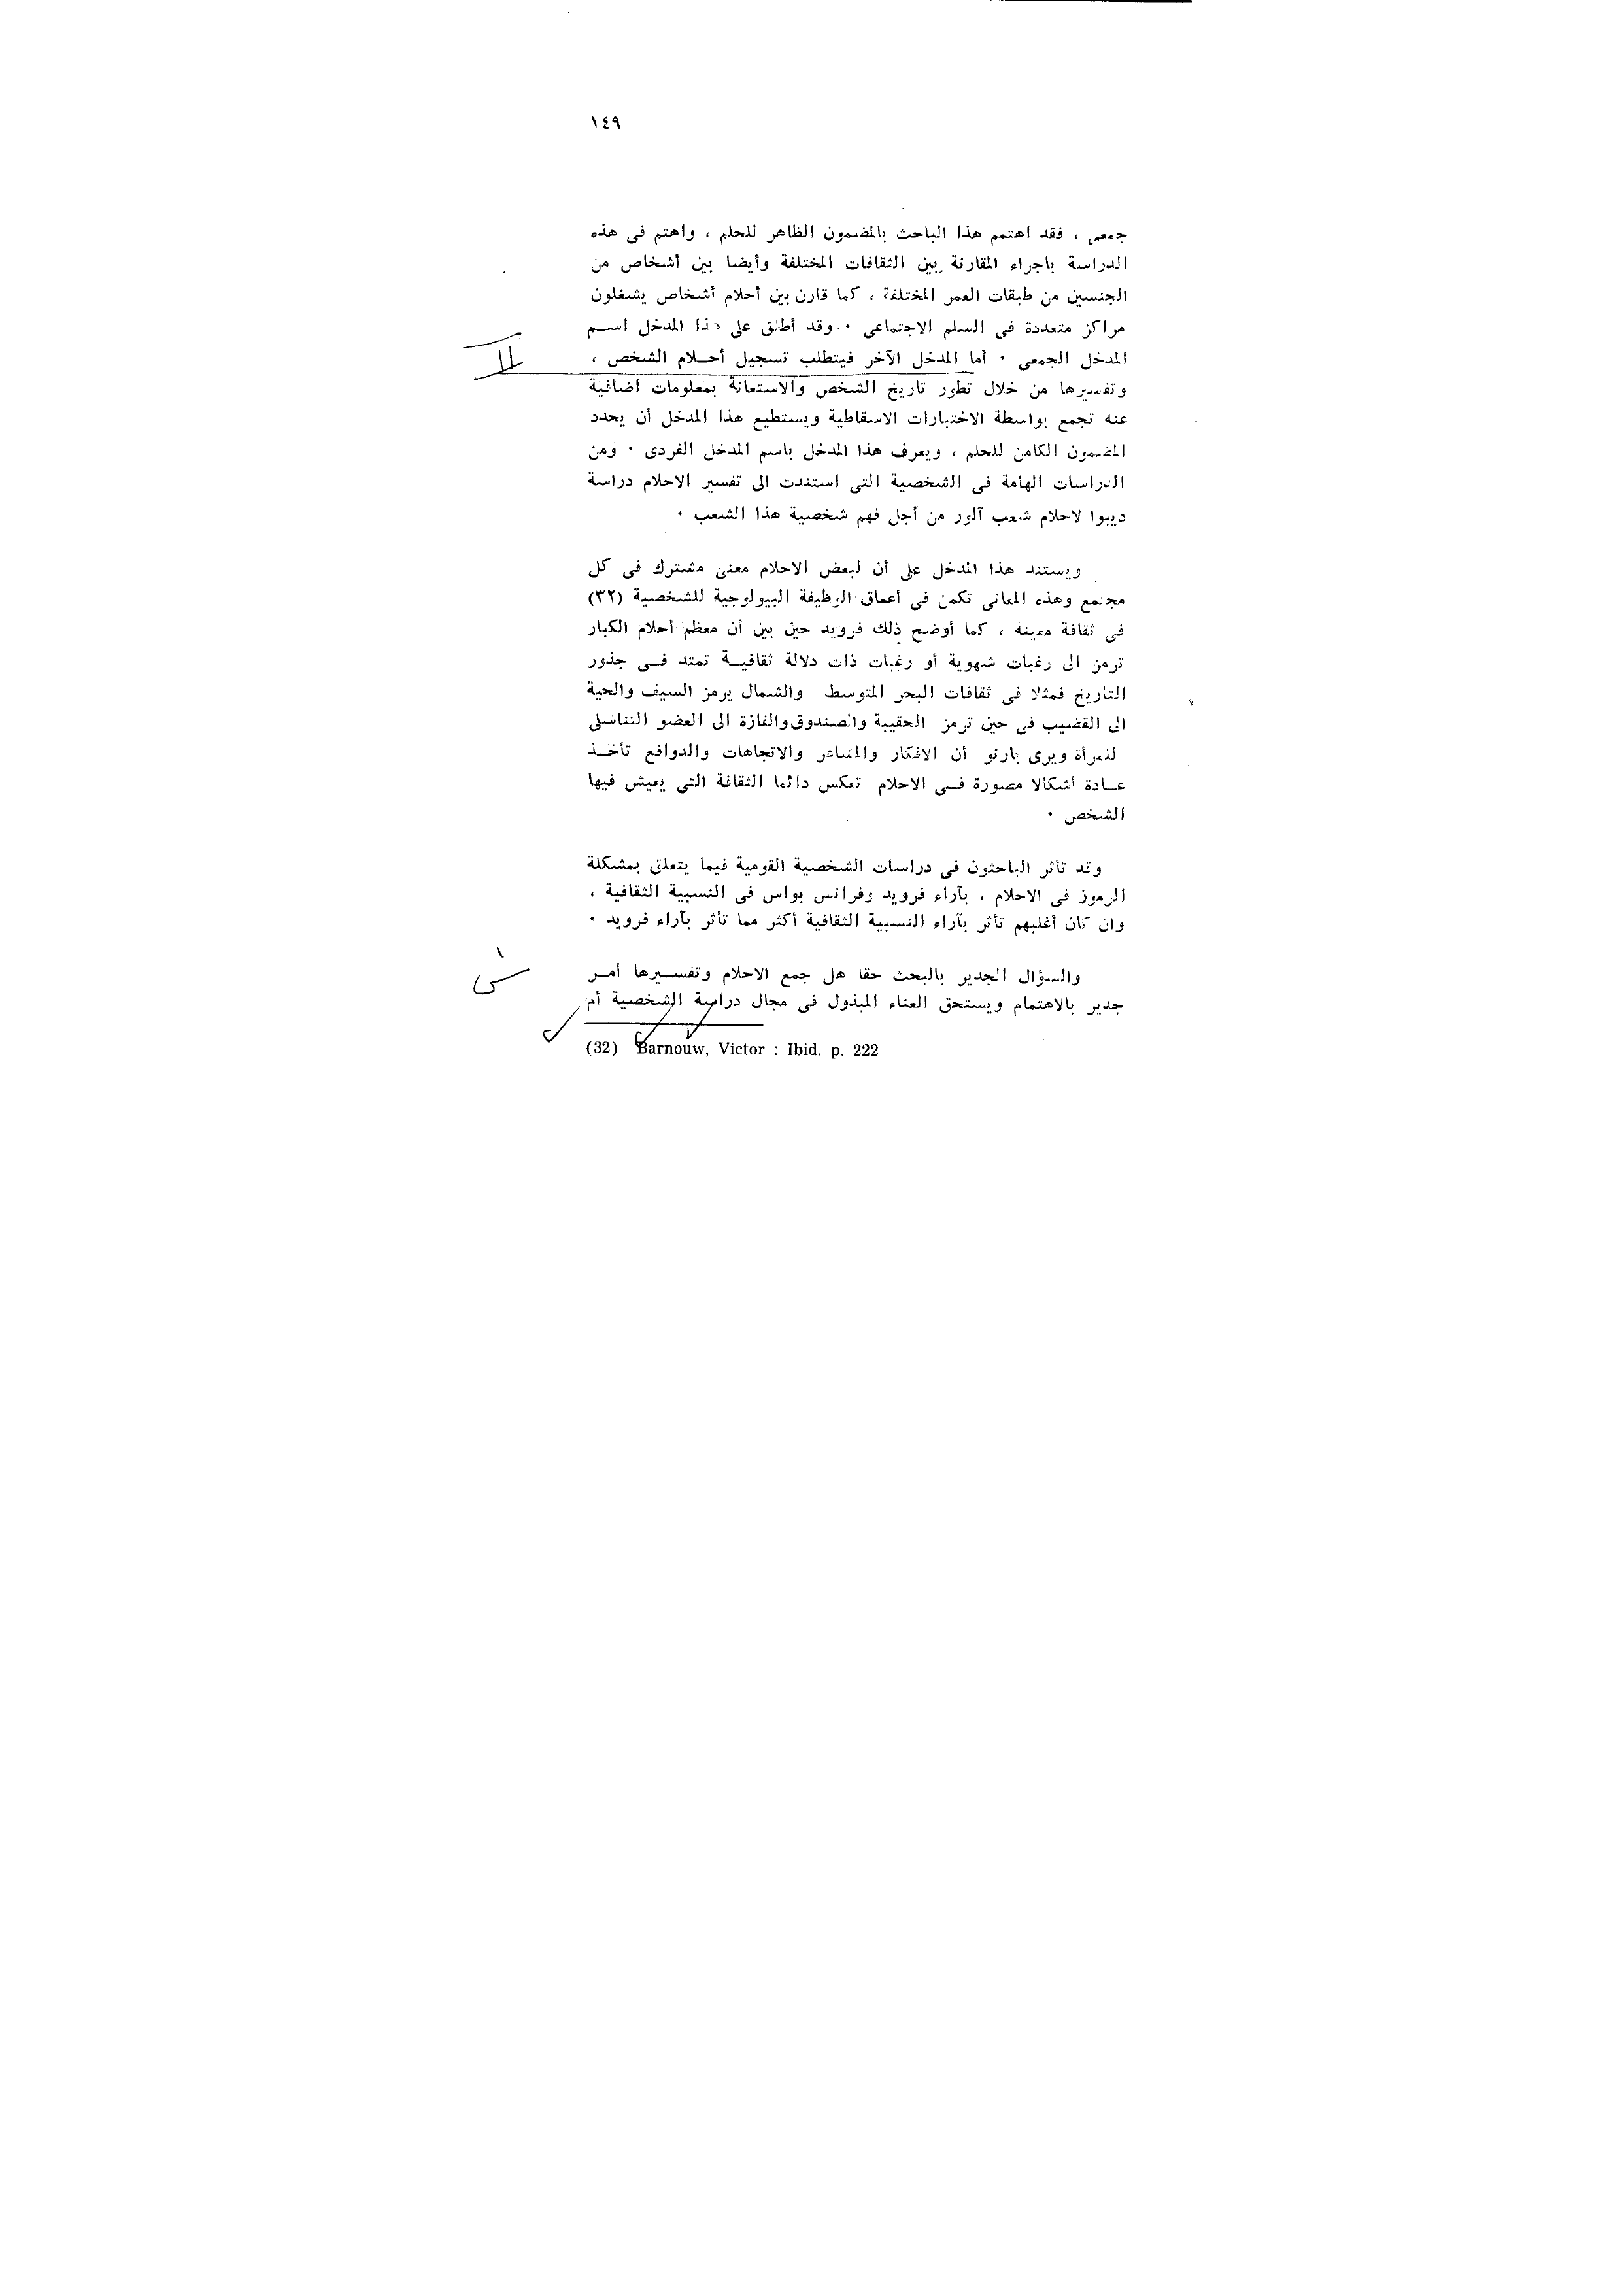 ١٤٩
جمعى ، فقد اهتم هذا الباحث بالمضمون الظاهر للحلم ، واهتم فى هذه
الدراسة باجراء المقارنة بين الثقافات المختلفة وأيضا بين أشخاص من
الجنسين من طبقات العمر المختلفة ، كما قارن بين أحلام أشخاص يشغلون
مراكز متعددة فى السلم الاجتماعى ٠ وقد أطلق على هذا المدخل اسم
المدخل الجمعى ٠ أما المدخل الآخر فيتطلب تسجيل أحلام الشخص ،
II
وتفسيرها من خلال تطور تاريخ الشخص والاستعانة بمعلومات اضافية
عنه تجمع بواسطة الاختبارات الاسقاطية ويستطيع هذا المدخل أن يحدد
المضمون الكامن للحلم ، ويعرف هذا المدخل باسم المدخل الفردى ٠ ومن
الدراسات الهامة فى الشخصية التى استندت الى تفسير الاحلام دراسة
ديبوا لاحلام شعب آلور من أجل فهم شخصية هذا الشعب ٠
ويستند هذا المدخل على أن لبعض الاحلام معنى مشترك فى كل
مجتمع وهذه المعانى تكمن فى أعماق الوظيفة البيولوجية للشخصية (٣٢)
فى ثقافة معينة ، كما أوضح ذلك فرويد حين بين أن معظم أحلام الكبار
ترمز الى رغبات شهوية أو رغبات ذات دلالة ثقافية تمتد فى جذور
التاريخ فمثلا فى ثقافات البحر المتوسط والشمال يرمز السيف والحية
الى القضيب فى حين ترمز الحقيبة والصندوق والفازة الى العضو التناسلى
للمرأة ويرى بارنو أن الافكار والمشاعر والاتجاهات والدوافع تأخذ
عادة أشكالا مصورة فى الاحلام تعكس دائما الثقافة التى يعيش فيها
الشخص ٠
وقد تأثر الباحثون فى دراسات الشخصية القومية فيما يتعلق بمشكلة
الرموز فى الاحلام ، بآراء فرويد وفرانس بواس فى النسبية الثقافية ،
وان كان أغلبهم تأثر بآراء النسبية الثقافية أكثر مما تأثر بآراء فرويد ٠
والسؤال الجدير بالبحث حقا هل جمع الاحلام وتفسيرها أمر
جدير بالاهتمام ويستحق العناء المبذول فى مجال دراسة الشخصية أم
(32) Barnouw, Victor : Ibid. p. 222